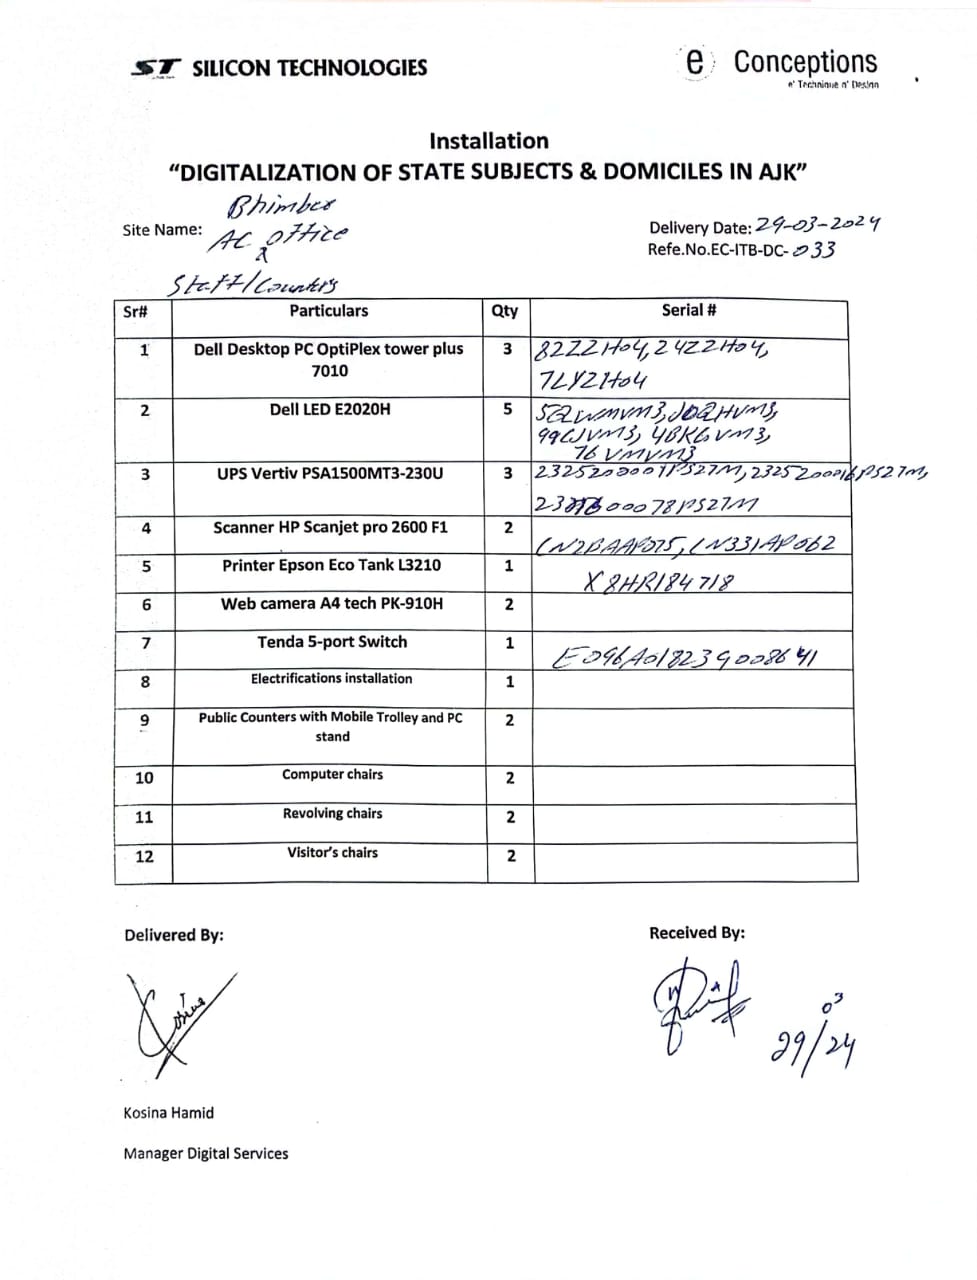 ST SILICON TECHNOLOGIES
e Conceptions
e' Technique n' Design
Installation
“DIGITALIZATION OF STATE SUBJECTS & DOMICILES IN AJK”
Bhimber
Site Name: AC Office
Delivery Date: 29-03-2024
Refe.No.EC-ITB-DC-033
Staff/Counters
Sr# Particulars Qty Serial #
1 Dell Desktop PC OptiPlex tower plus 7010 3 82ZZ1H04, 24ZZ1H04,
7LYZ1H04
2 Dell LED E2020H 5 5QWMVM3, J0QHVM3,
99GJVM3, 4BKGVM3,
76VMVM3
3 UPS Vertiv PSA1500MT3-230U 3
00078PS27M
4 Scanner HP Scanjet pro 2600 F1 2 CN2BAAP075, CN331AP062
5 Printer Epson Eco Tank L3210 1 X8HR184718
6 Web camera A4 tech PK-910H 2
7 Tenda 5-port Switch 1 E096A018239008641
8 Electrifications installation 1
9 Public Counters with Mobile Trolley and PC stand 2
10 Computer chairs 2
11 Revolving chairs 2
12 Visitor’s chairs 2
Delivered By:
Received By:
Kosina
03
29/24
Kosina Hamid
Manager Digital Services